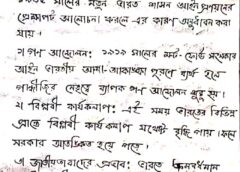 ১৯৩৫ সালের নতুন ভারত শাসন আইন প্রণয়নের
প্রেক্ষাপট আলোচনা করলে এর কারণ অনুধাবন করা
যায়।
১ গণ আন্দোলন: ১৯১৯ সালের মন্ট-ফোর্ড সংস্কার
আইন ভারতীয় আশা-আকাঙ্ক্ষা পূরণে ব্যর্থ হলে
গান্ধীজির নেতৃত্বে ব্যাপক গণ আন্দোলন শুরু হয়।
২ বিপ্লবী কার্যকলাপ: এই সময় ভারতের বিভিন্ন
প্রান্তে বিপ্লবী কার্যকলাপ যথেষ্ট বৃদ্ধি পায়। ফলে
সরকার আতঙ্কিত হয়ে পড়ে।
৩ জাতীয়তাবাদের প্রভাব: ভারতে ক্রমবর্ধমান